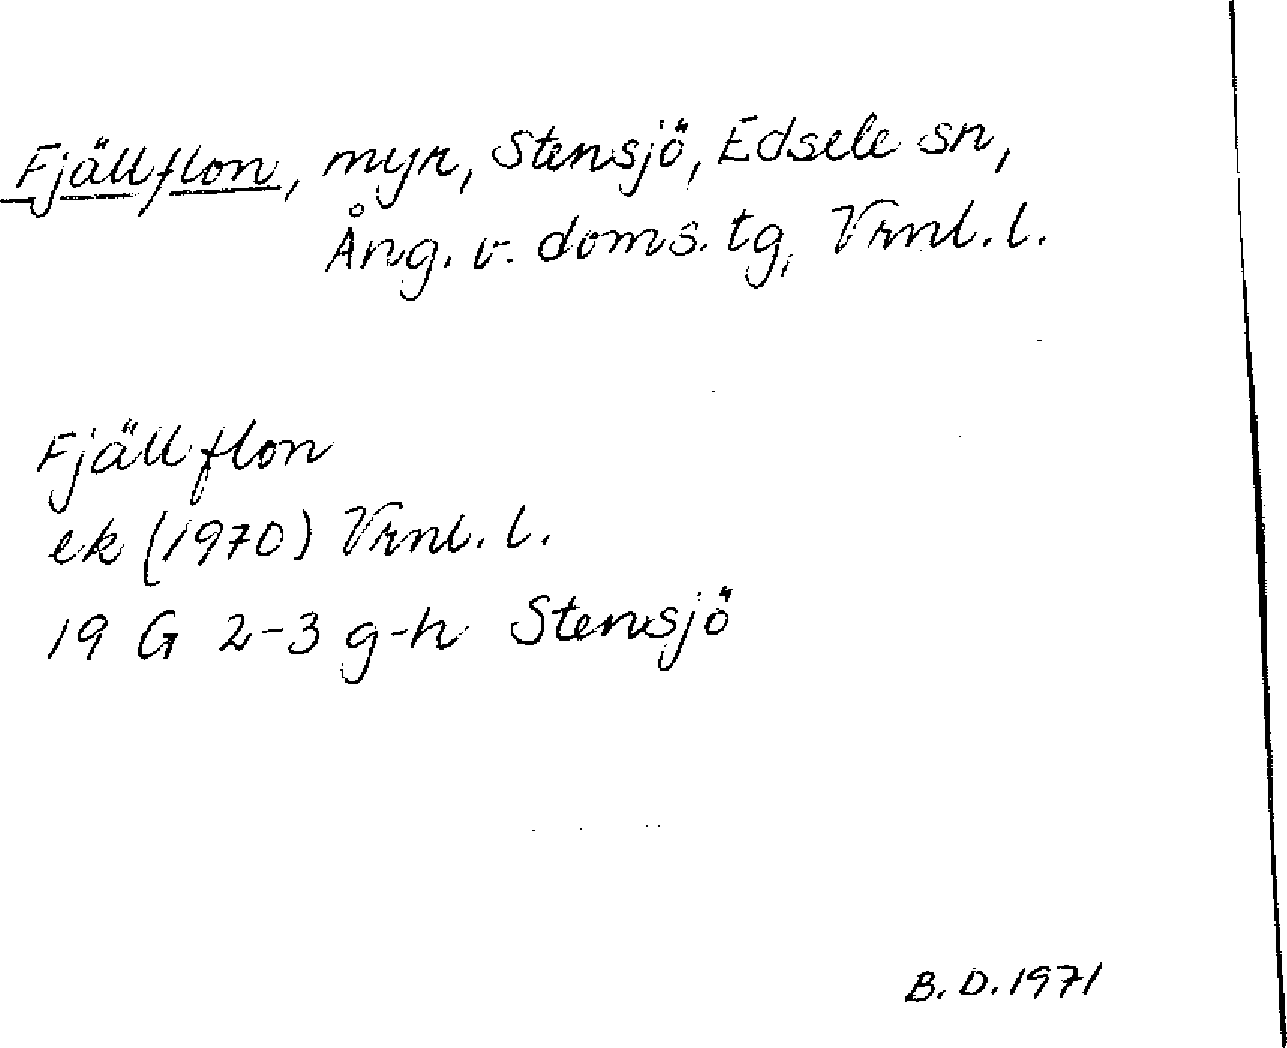 Fjällflon, myr, Stensjö, Edsele sn,
Ång. v. doms. tg, Vrnl. l.
Fjällflon
ek (1970) Vrnl. l.
19 G 2-3 g-h Stensjö
B. D. 1971